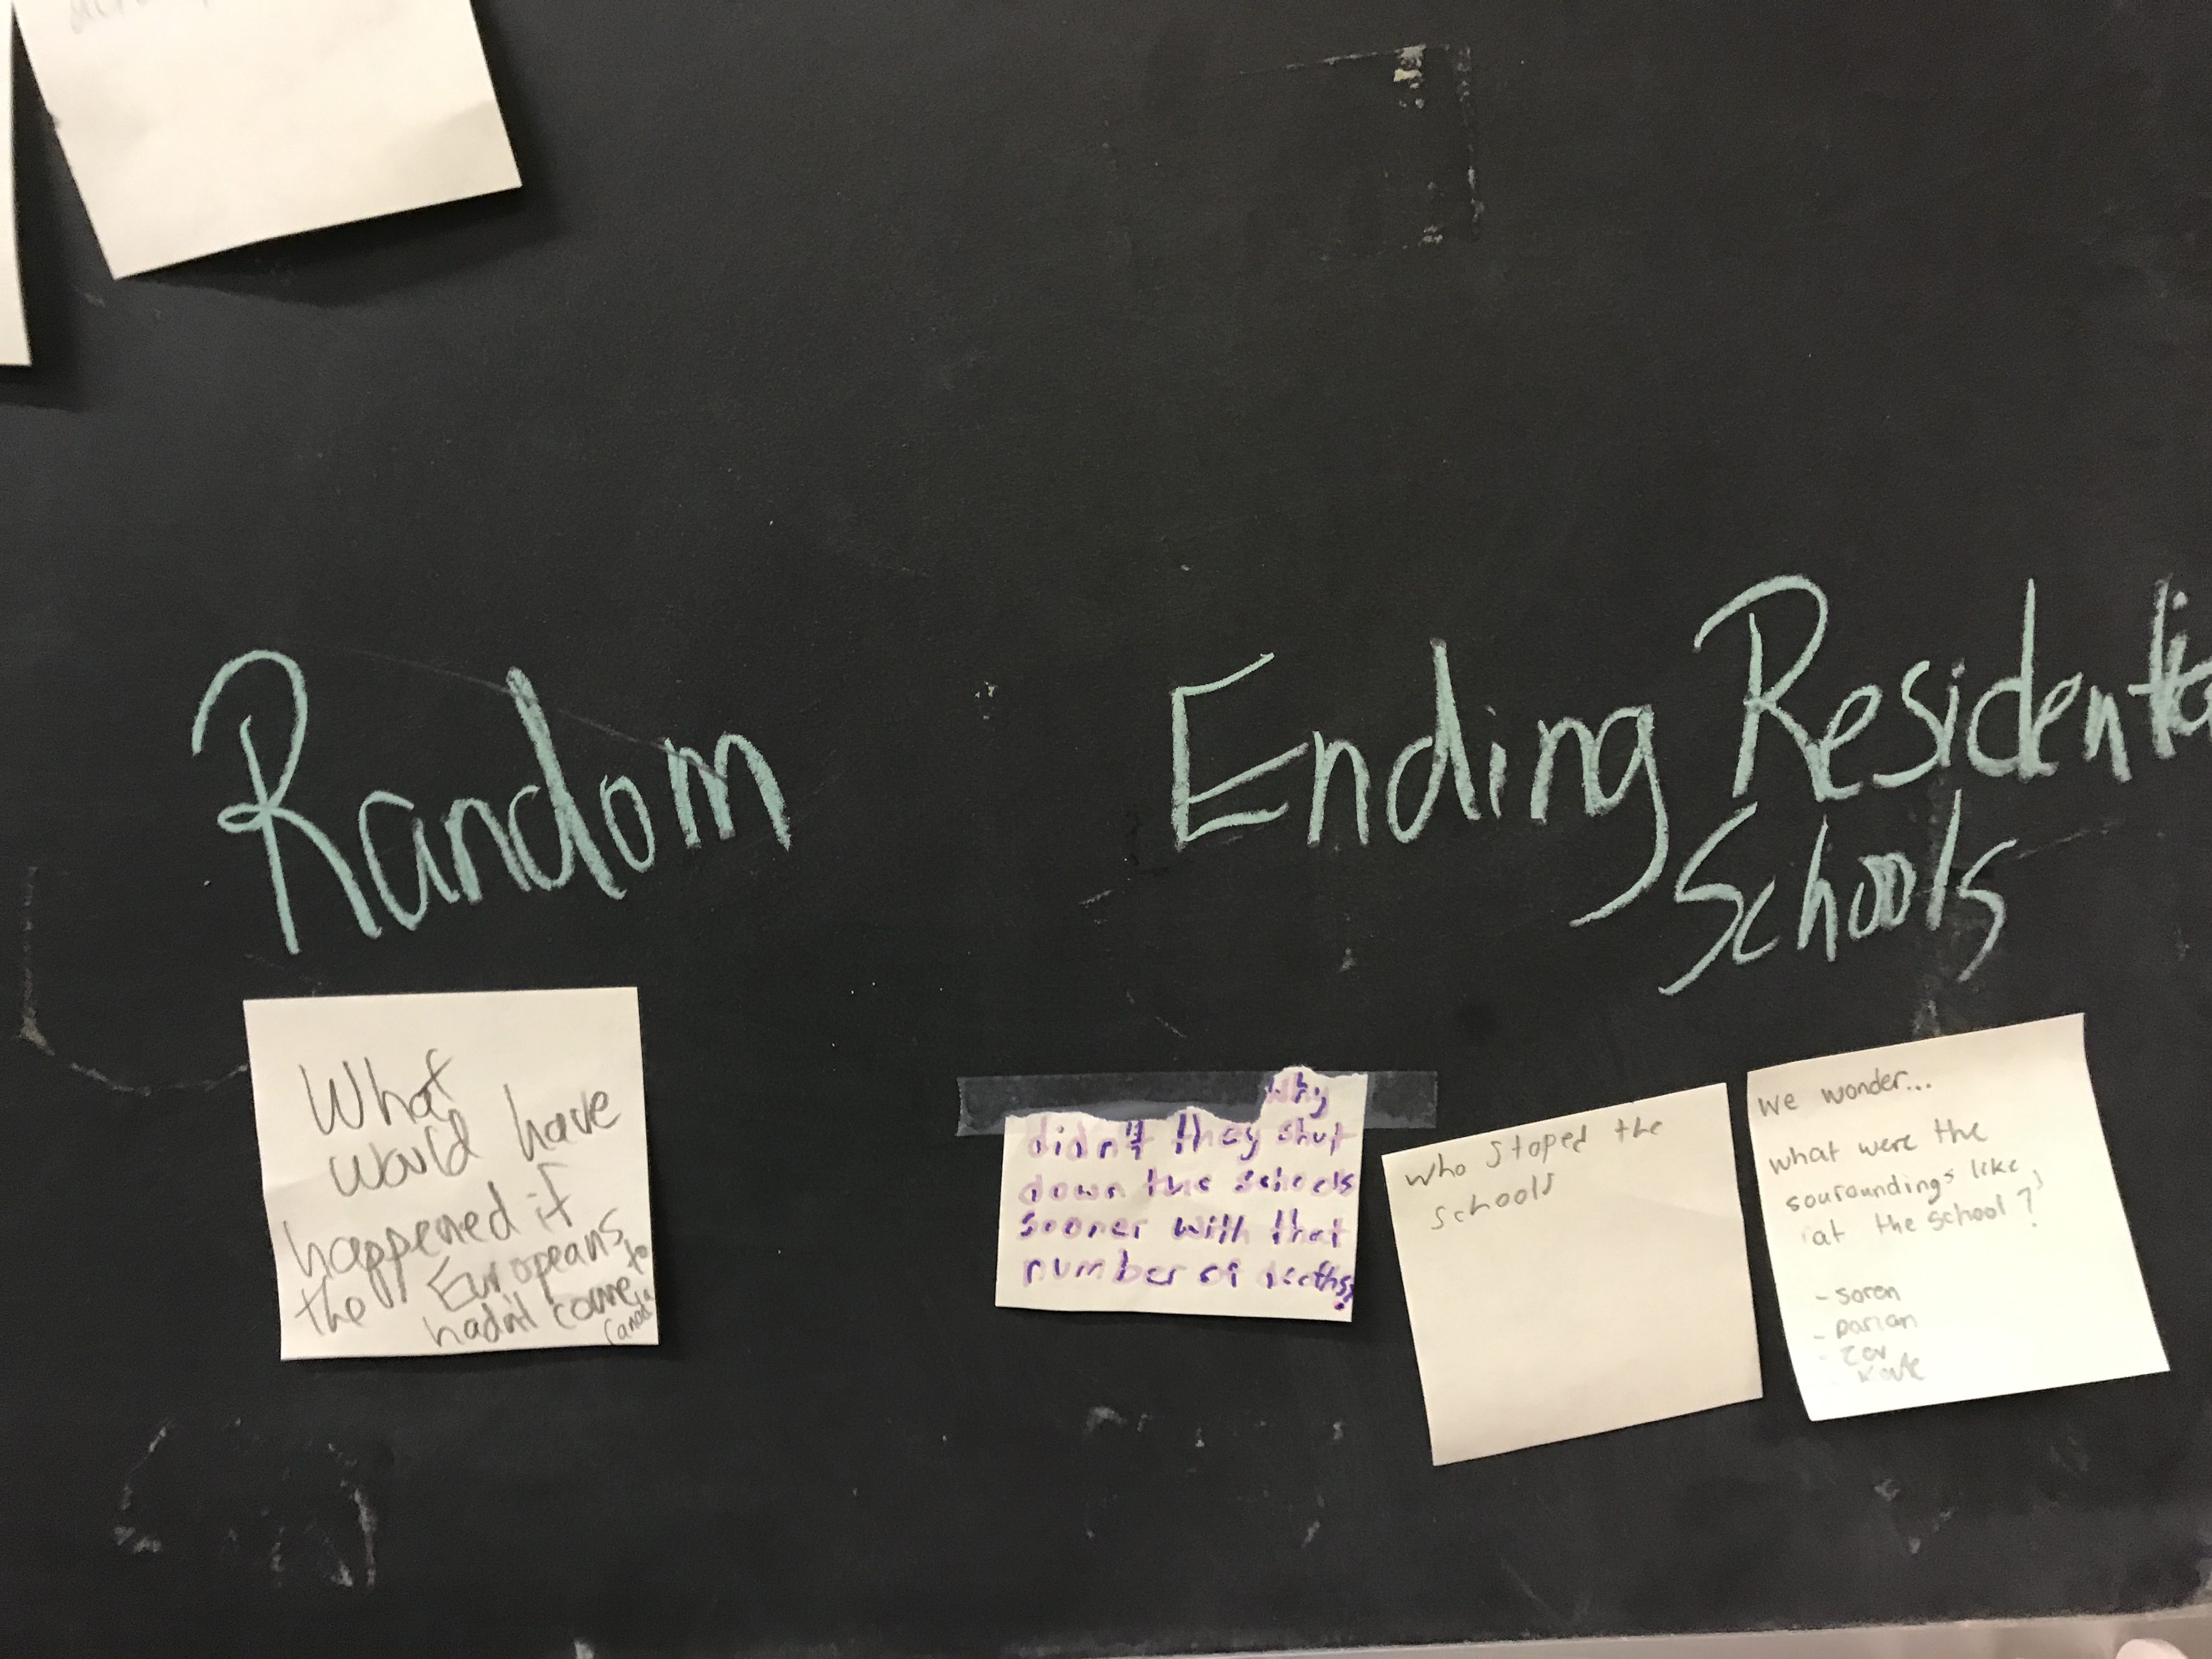 Random
What
would have
happened if
the Europeans
hadn't come to
Canada
Ending Residential
Schools
Why
didn't they shut
down the schools
sooner with that
number of deaths?
who stoped the
schools
we wonder...
what were the
souroundings like
at the school?
- soren
- Darian